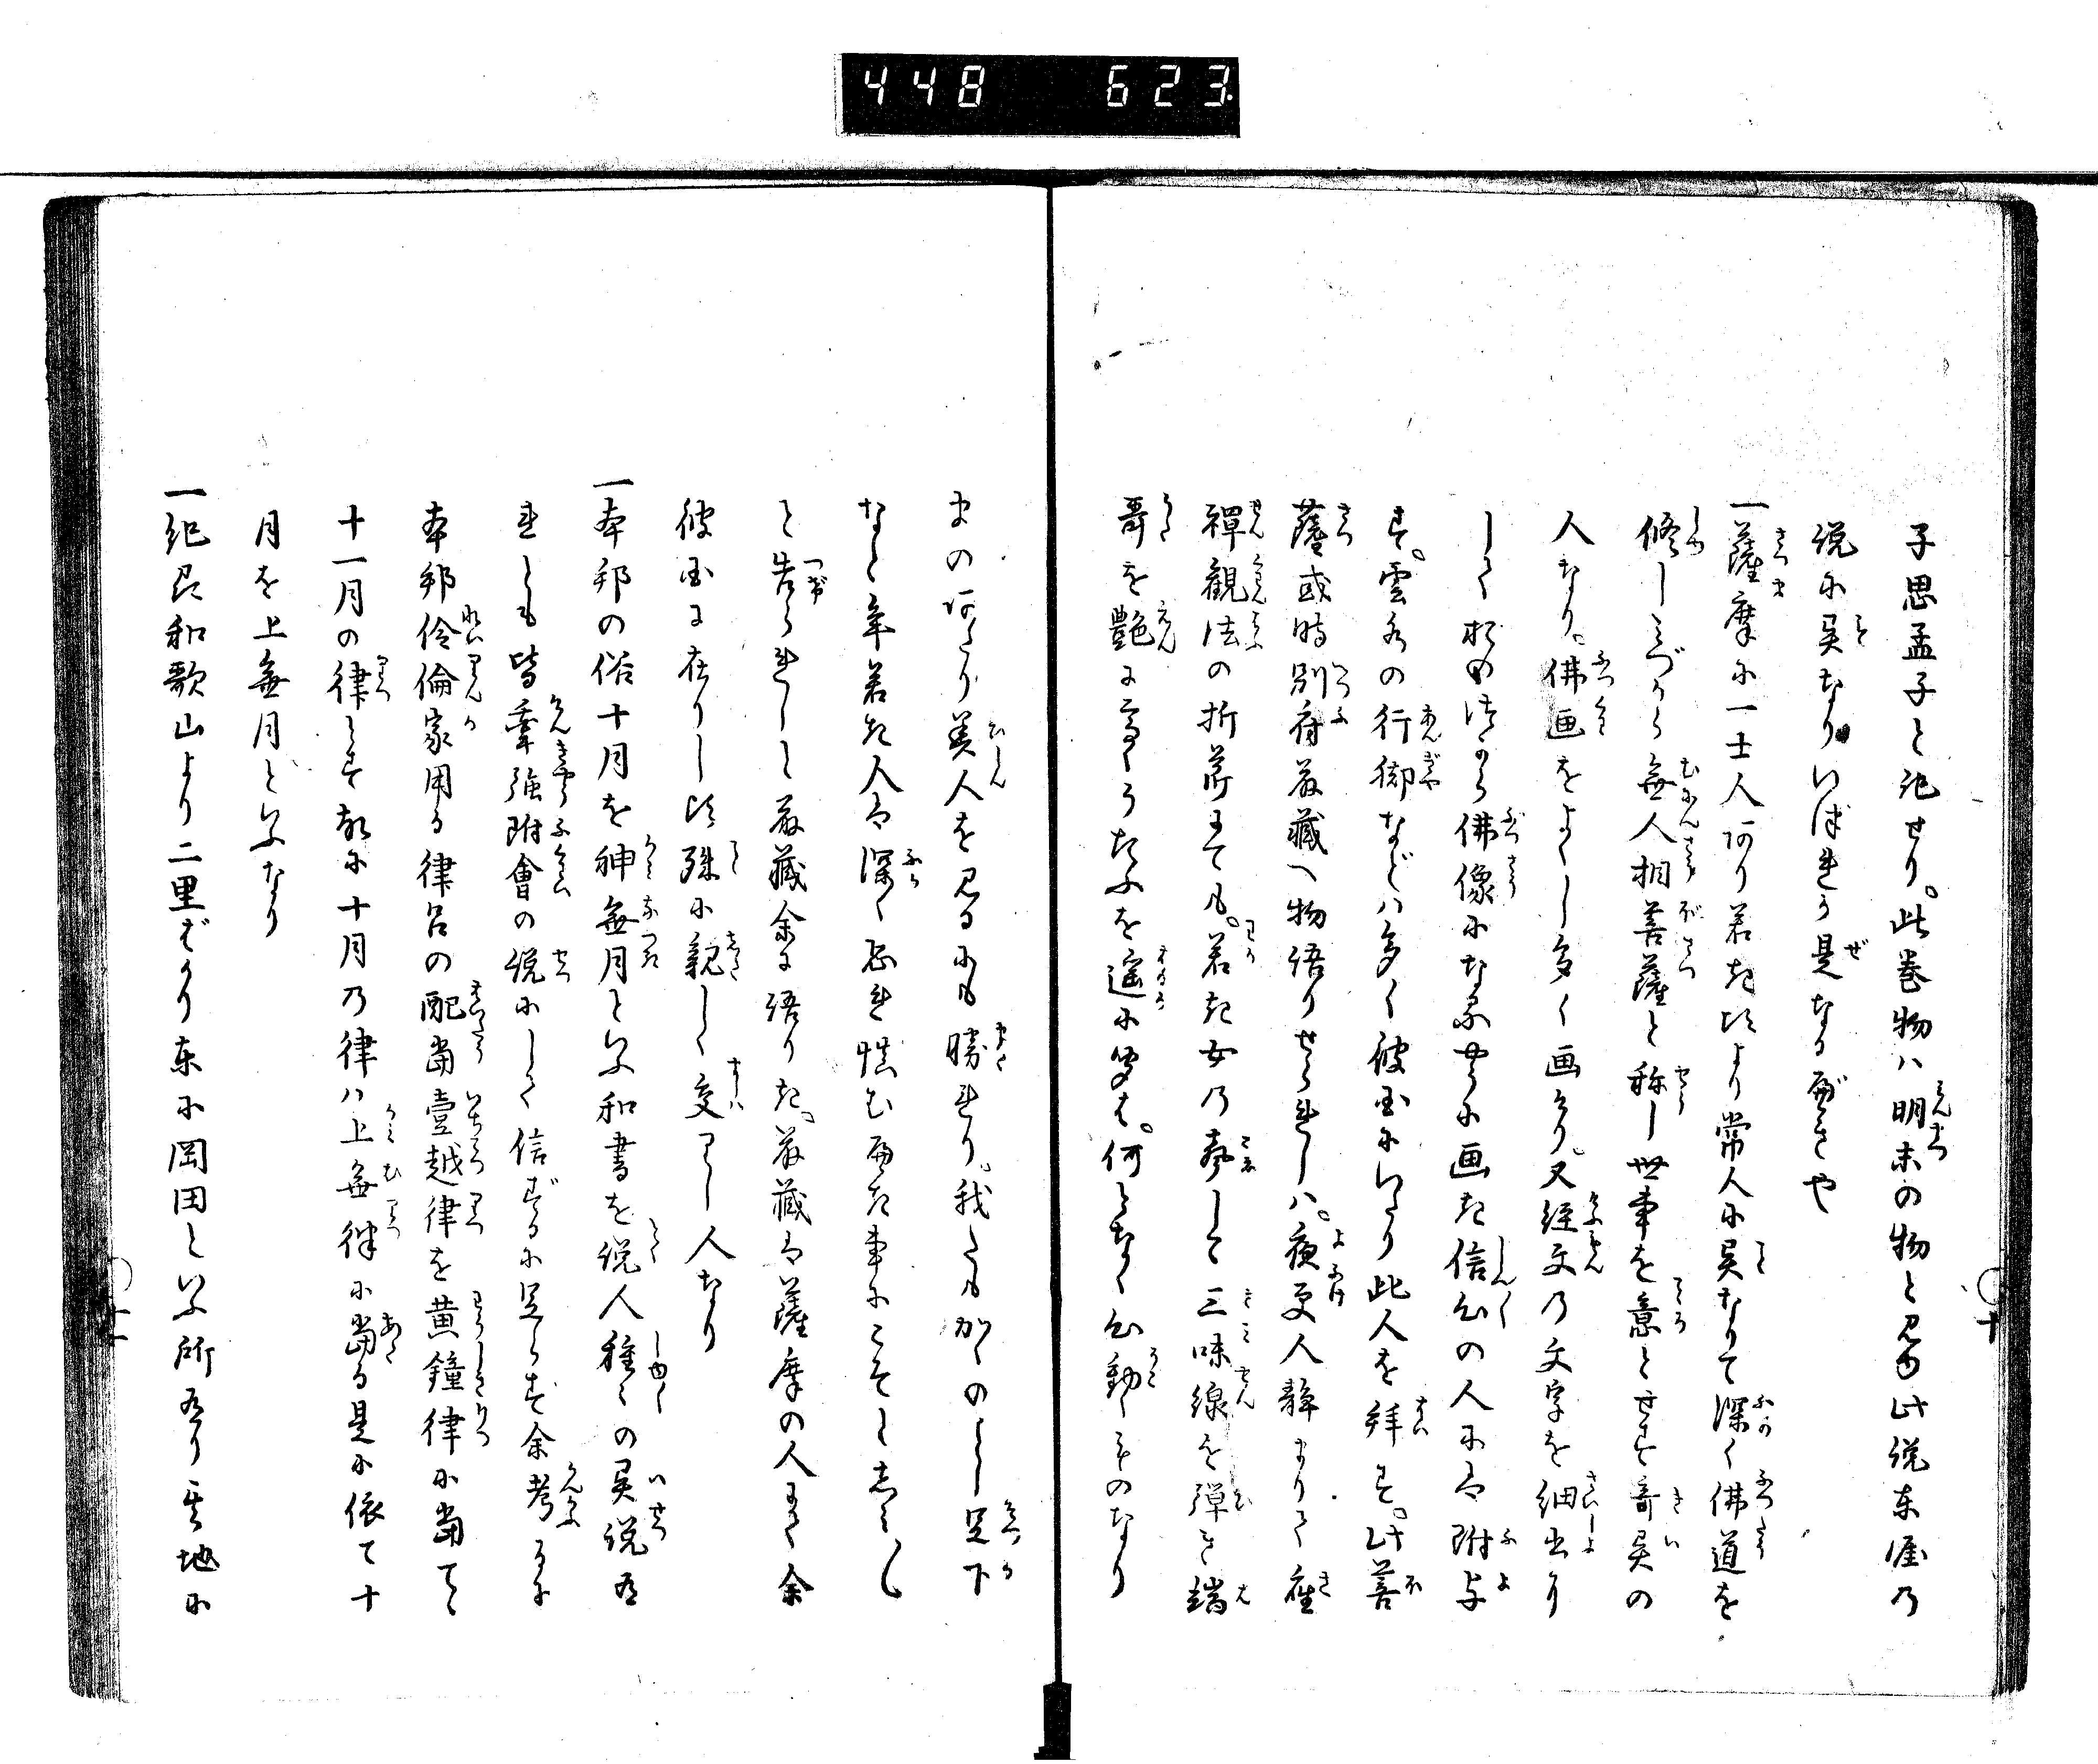 448 623
子思孟子と記せり。此巻物ハ明末の物と見ゆ此説東厓乃
説に異なりいづれか是なるべきや
一薩摩に一士人あり若き比より常人に異なりて深く佛道を
修しみづから無人相菩薩と称し世事を意とせず奇異の
人なり。佛画をよくし多く画けり。又経文の文字を細書
して佛像になるやうに画き信心の人には附与
す。雲水の行脚などハ多く彼国にいたり此人を拝す。此菩
薩或時別府蔵へ物語りせられしハ。夜更人静まりて座
禅観法の折節にても。若き女乃声して三味線を弾き端
哥を艶にうたふを遥に聞ば。何となく心動くものなり
まのあたり美人を見るにも勝れり。我さへもかくのごとし足下
など年若き人は深く恐れ慎むべき事にこそとしるべし
と告られしと蔵余に語りき。蔵は薩摩の人にて余
彼国に在りし比殊に親しく交りし人なり
一本邦の俗十月を神無月といふ和書を説人種々の異説有
れども皆牽強附會の説にして信ずるに足らず余考るに
本邦伶倫家用る律呂の配当壹越律を黄鐘律に当て
十一月の律とす故に十月乃律ハ上無律に当る是に依て十
月を上無月といふなり
一紀州和歌山より二里ばかり東に岡田といふ所有り其地に
十